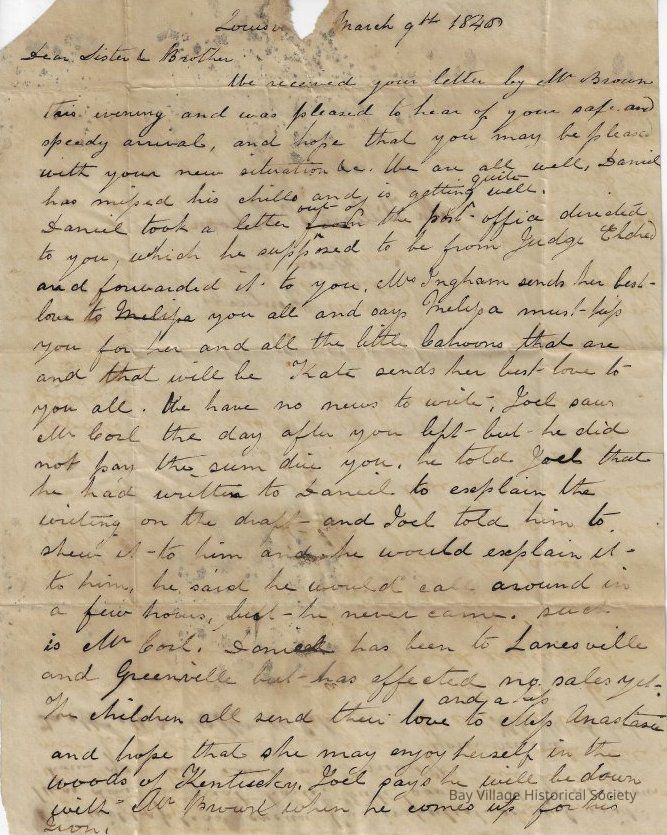 Louisv March 9th 1840
Dear Sister & Brother
We received your letter by Mr Brown
this evening and was pleased to hear of your safe and
speedy arrival, and hope that you may be please
with your new situation &c. We are all well, Daniel
has missed his chills and is getting quite well.
Daniel took a letter out of the post office directed
to you, which he supposed to be from Judge Eldred
and forwarded it to you, Mrs Ingham sends her best
love to you all and says Melissa must kiss
you for her and all the little Cahoons that are
and that will be Kate sends her best love to
you all. We have no news to write, Joel saw
Mr Coil the day after you left but he did
not pay the sum due you. he told Joel that
he had written to Daniel to explain the
writing on the draft and Joel told him to
shew it to him and he would explain it
to him, he said he would call around in
a few hours, but he never came. such
is Mr Coil. Daniel has been to Lanesville
and Greenville but has effected no sales yet
The children all send their love and a kiss to Miss Anastasia
and hope that she may enjoy herself in the
woods of Kentucky. Joel says he will be down
with Mr Brown when he comes up for his
iron.
Bay Village Historical Society